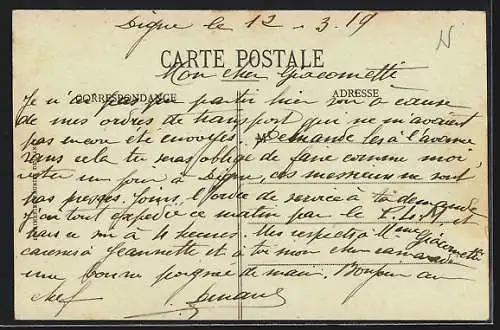 Digne le 12 - 3 - 19
CARTE POSTALE
Mon cher Giacometti
CORRESPONDANCE
ADRESSE
Je n'ai pas pu partir hier soir à cause
de mes ordres de transport qui ne m'avaient
pas encore été envoyés. Demande les à l'avance
sans cela tu seras obligé de faire comme moi,
rester un jour à Digne, ces messieurs ne sont
pas pressés. Joins l'ordre de service à ta demande
J'ai tout expédié ce matin par le P.L.M et
pars ce soir à 4 heures. Mes respects à Mme Giacometti
caresses à Jeannette et à toi mon cher camarade
une bonne poignée de main. Bonjour au
chef